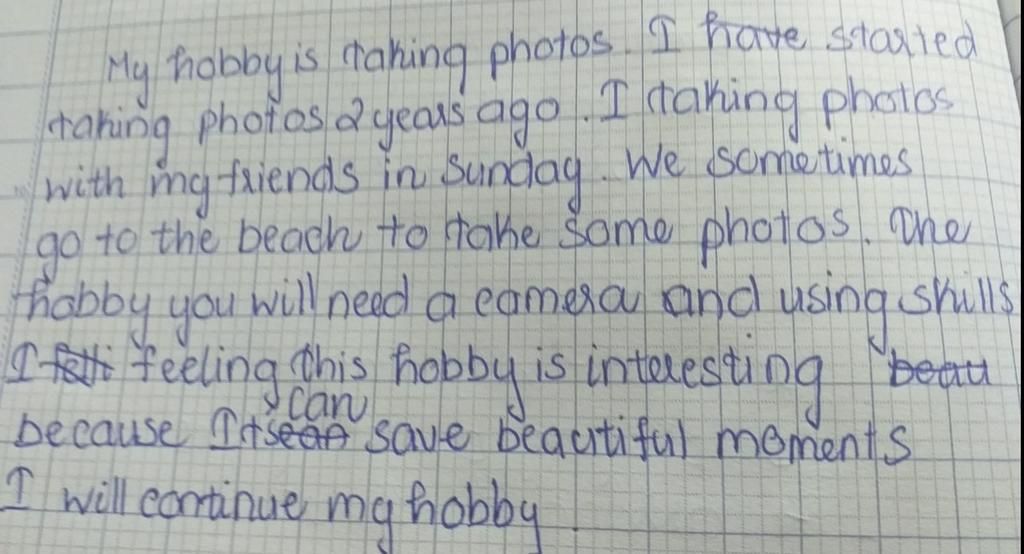 My hobby is taking photos. I have started
taking photos 2 years ago. I taking photos
with my friends in Sunday. We sometimes
go to the beach to take some photos. The
hobby you will need a camera and using skills
I feeling this hobby is interesting beau
because It can save beautiful moments
I will continue my hobby.